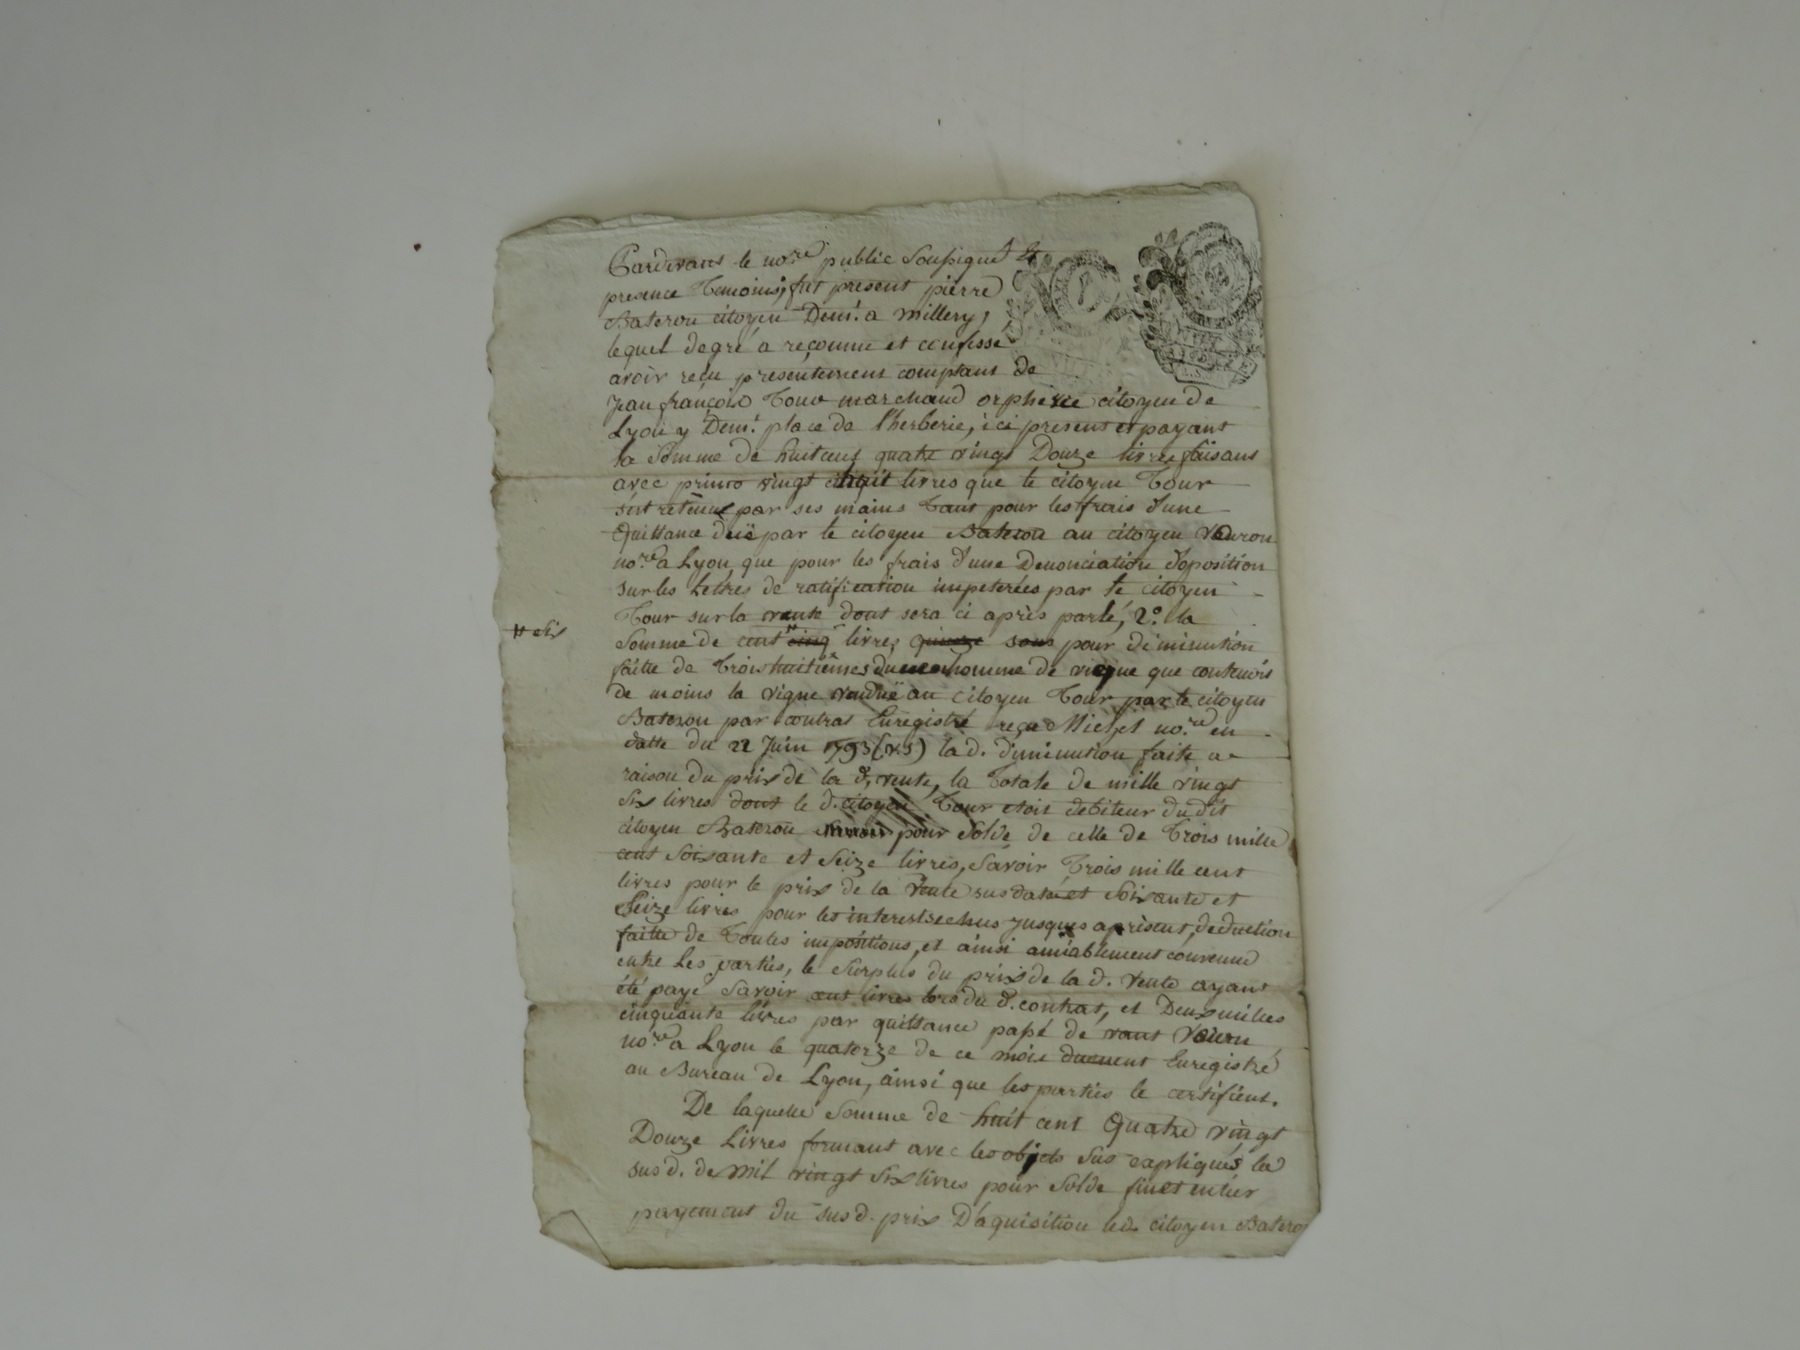 Pardevant le no.re public soussigné &
presence Temoins, fut present pierre
Bateron citoyen Dem.t a millery,
lequel de gré a reconnu et confessé
avoir reçu presentement comptant de
Jean françois Tour marchand orphevre citoyen de
Lyon y Dem.t place de l'herberie, ici present et payant
la Somme de huit cent quatre vingt Douze livres faisant
avec primo vingt huit livres que le citoyen Tour
s'est retenue par ses mains tant pour les frais d'une
Quittance düe par le citoyen Bateron au citoyen
no.re a Lyon que pour les frais d'une Denonciation d'oposition
sur les Lettres de ratification impetrées par le citoyen
Tour sur la vente dont sera ci après parlé, 2.o la
# six
Somme de cent # cinq livres quinze sous pour diminution
faitte de Trois huitièmes du homme de vigne que contenoit
de moins la vigne vendüe au citoyen Tour par le citoyen
Bateron par contrat Enregistré reçu Michel no.re en
datte du 22 Juin 1793 (v.s) la d. diminution faite a
raison du prix de la d. vente, la Totale de mille vingt
six livres dont le d. citoyen Tour etoit debiteur du dit
citoyen Bateron pour solde de celle de Trois mille
cent soixante et seize livres, savoir Trois mille cent
livres pour le prix de la vente sus datée et soixante et
seize livres pour les interets echus jusques a présent, deduction
faitte de Toutes impositions, et ainsi amiablement convenu
entre les parties, le surplus du prix de la d. vente ayant
été payé savoir cent livres lors du d. contrat, et Deux milles
cinquante livres par quittance passé de vant
no.re a Lyon le quatorze de ce mois duement Enregistré
au Bureau de Lyon, ainsi que les parties le certifient.
De laquelle somme de huit cent Quatre vingt
Douze Livres formant avec les objets sus expliqués la
sus d. de mil vingt six livres pour solde fin et entier
payement du sus d. prix D'aquisition led. citoyen Bateron